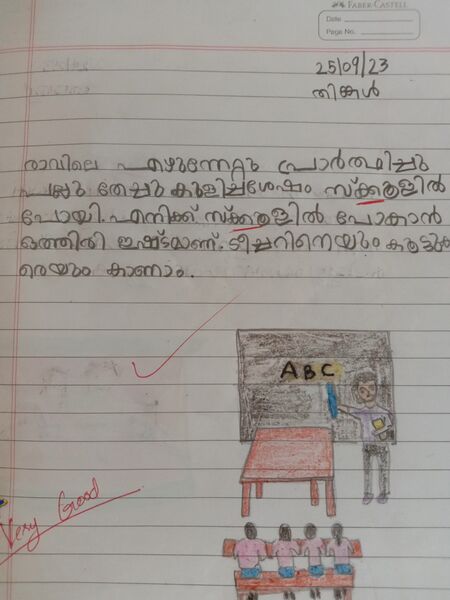 FABER-CASTELL
Date
Page No.
25/09/23
തിങ്കൾ
രാവിലെ എഴുന്നേറ്റു പ്രാർത്ഥിച്ചു
പല്ലു തേച്ചു കുളിച്ചശേഷം സ്ക്കൂളിൽ
പോയി. എനിക്ക് സ്ക്കൂളിൽ പോകാൻ
ഒത്തിരി ഇഷ്ടമാണ്. ടീച്ചറിനെയും കൂട്ടുകാ
രെയും കാണാം.
ABC
Very Good